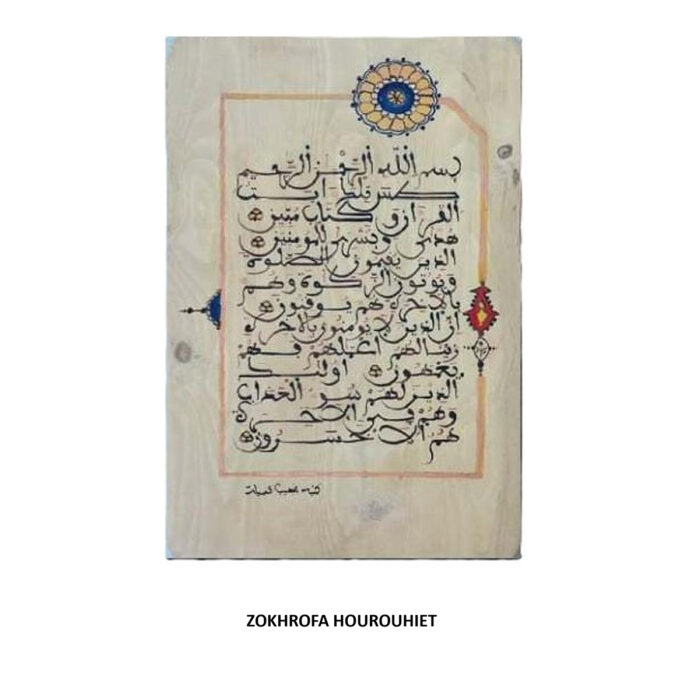 بسم الله الرحمن الرحيم
طس تلك ايت
القران وكتاب مبين
هدى وبشرى للمومنين
الذين يقيمون الصلوة
ويوتون الزكوة وهم
بالاخرة هم يوقنون
ان الذين لا يومنون بالاخرة
زينا لهم اعملهم فهم
يعمهون اولئك
الذين لهم سو العذاب
وهم في الاخرة
هم الاخسرون
كتبه
ZOKHROFA HOUROUHIET